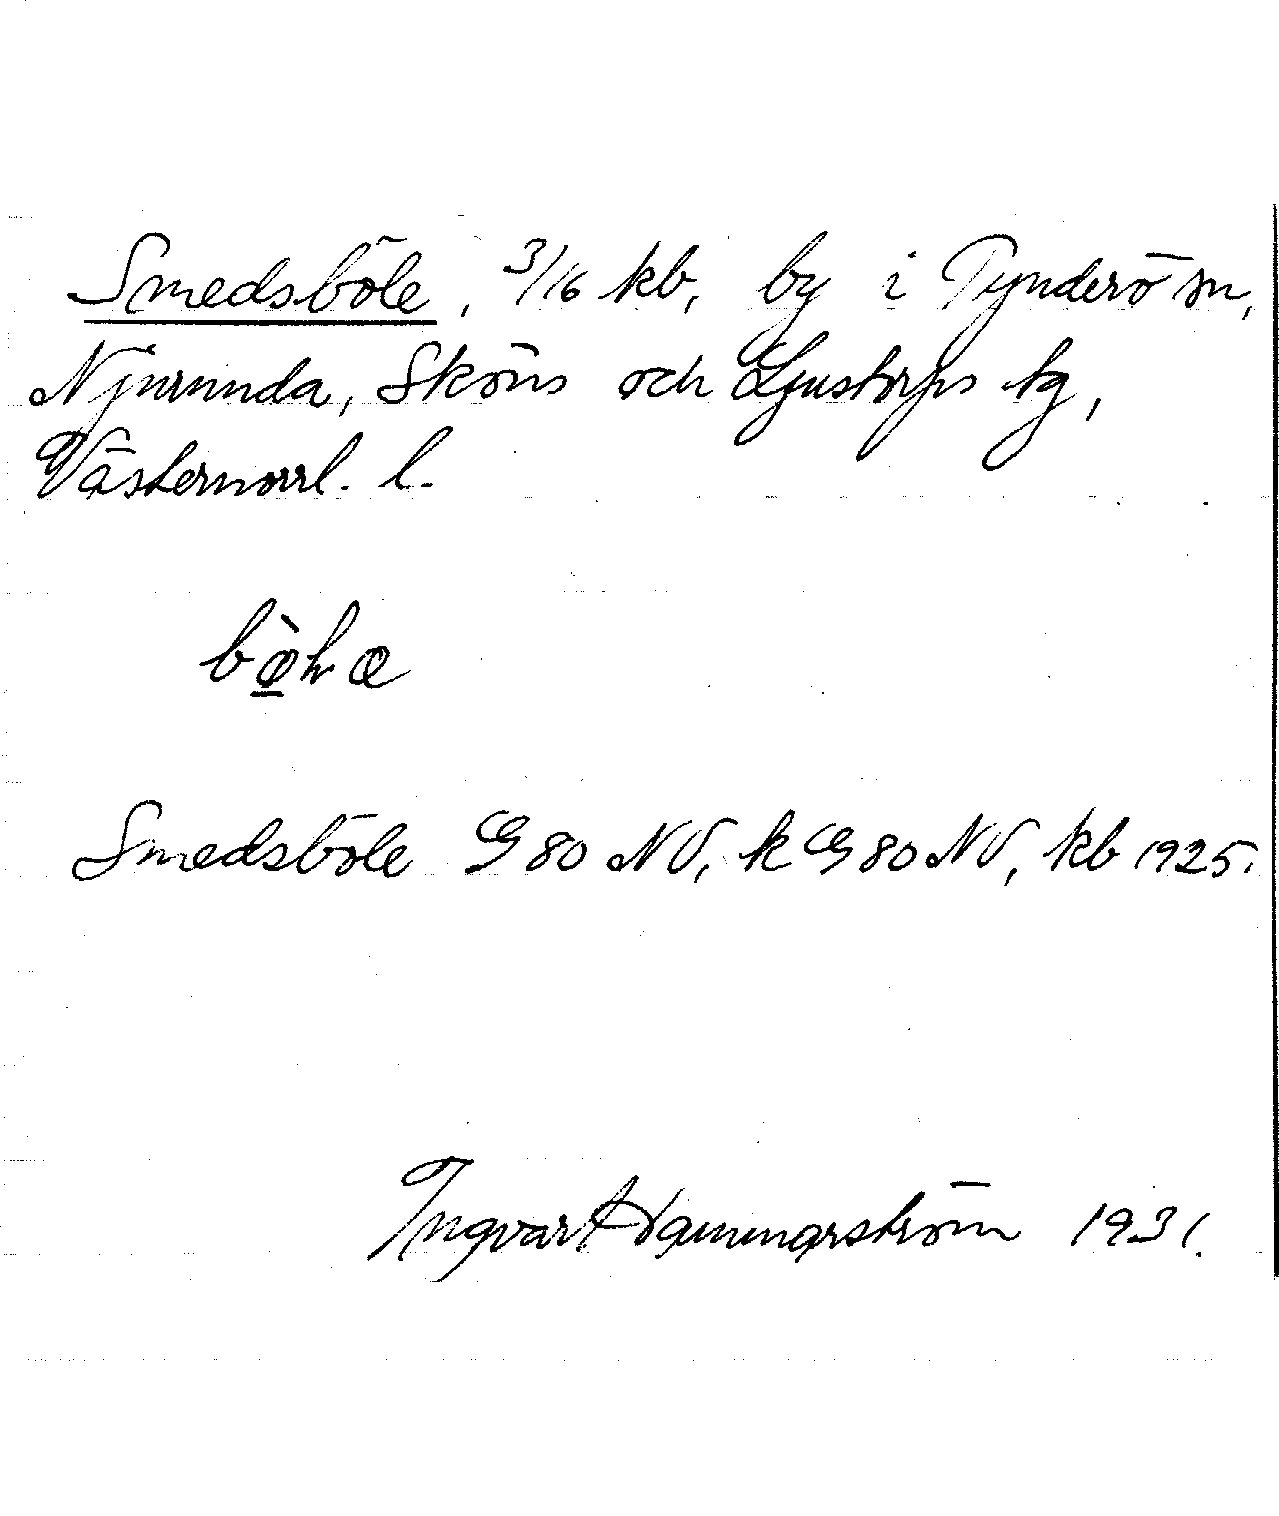 Smedsböle, 3/16 kb, by i Tynderö sn,
Njurunda, Sköns och Ljustorps tg,
Västernorrl. l.
Smedsböle G 80 NV, k G 80 NV, kb 1925.
Ingvar Hammarström 1931.